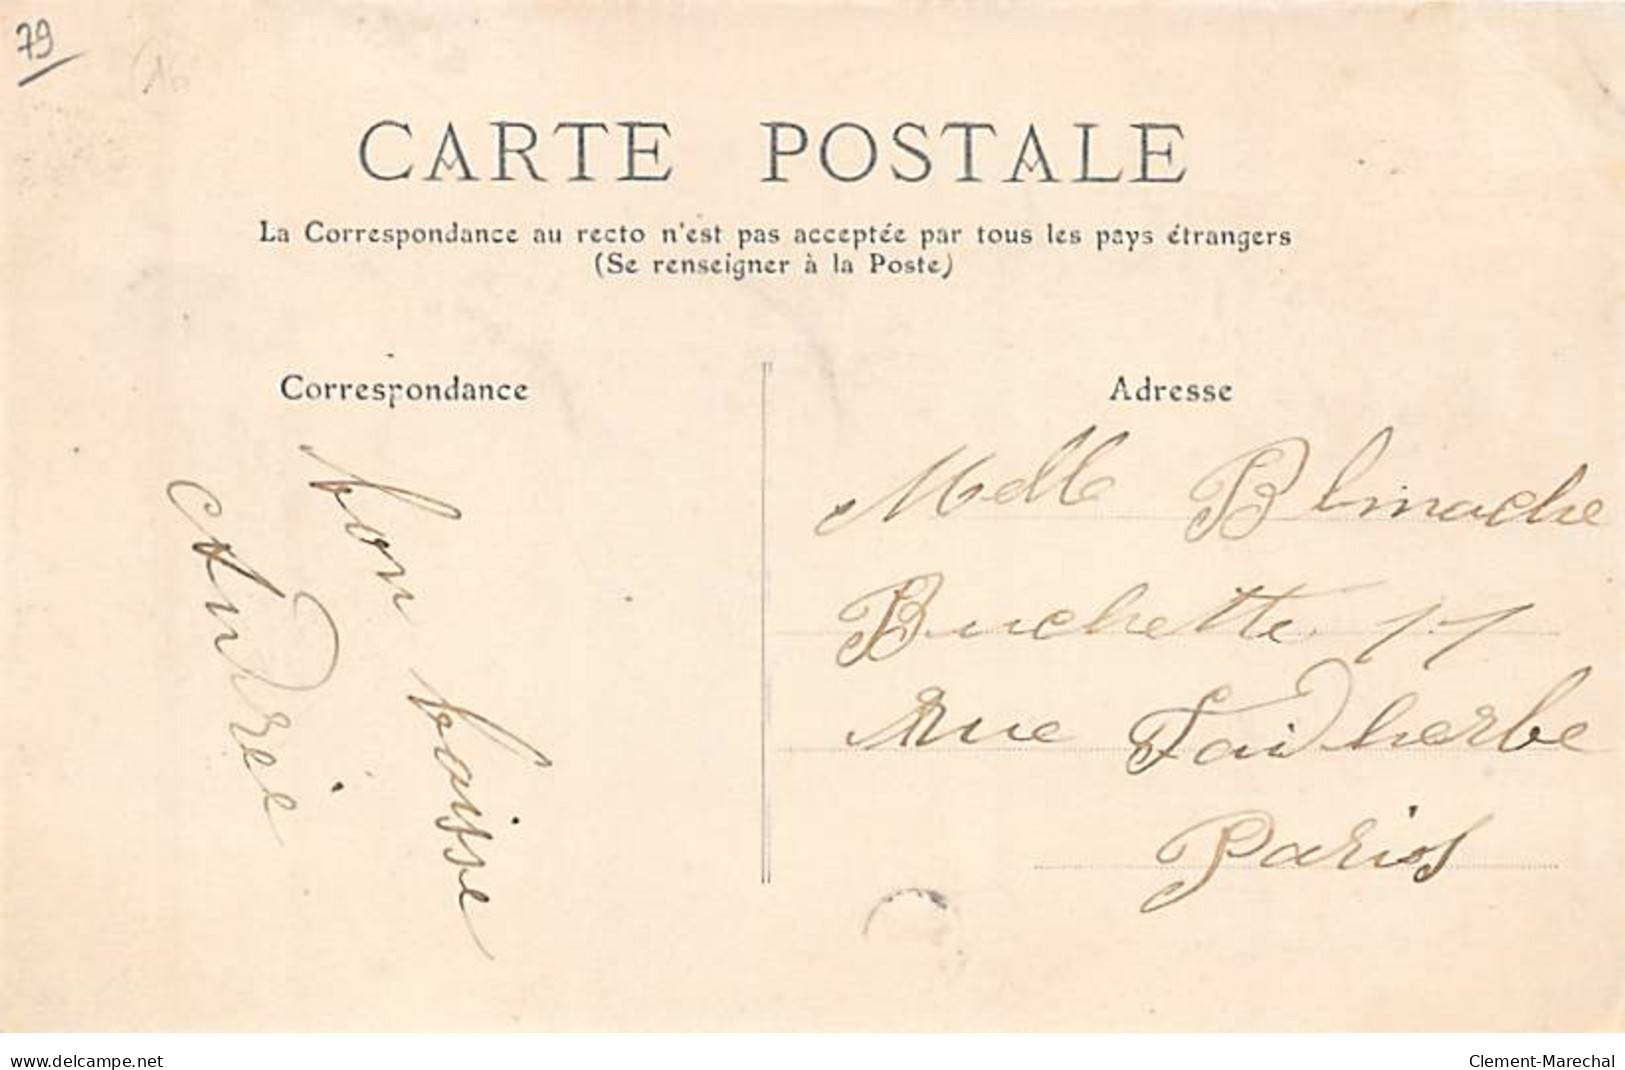 79
(16
CARTE POSTALE
La Correspondance au recto n'est pas acceptée par tous les pays étrangers
(Se renseigner à la Poste)
Correspondance
bon baisse
Andrée
Adresse
Melle Blmache
Buchette 11
rue Faidherbe
Paris
www.delcampe.net
Clement-Marechal